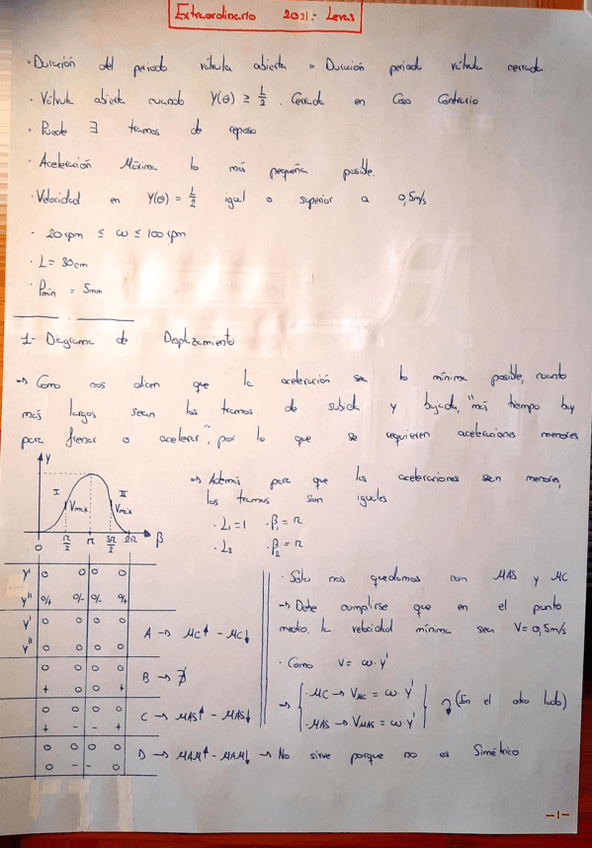 Extraordinario 2021 - Levas
· Duración del periodo válvula abierta = Duración periodo válvula cerrada
· Válvula abierta cuando Y(θ) ≥ L/2. Cerrada en Caso Contrario
· Puede ∃ tramos de reposo
· Aceleración Máxima lo más pequeña posible.
· Velocidad en Y(θ) = L/2 igual o superior a 0,5m/s
· 20 rpm ≤ ω ≤ 100 rpm
· L = 30cm
· ρmin = 5mm
1- Diagrama de Desplazamiento
→ Como nos dicen que la aceleración sea lo mínima posible, cuanto
más largos sean los tramos de subida y bajada, "más tiempo hay
para frenar o acelerar", por lo que se requieren aceleraciones menores
Y
I II
Vmax Vmax
0 π/2 π 3π/2 2π β
⇒ Además para que las aceleraciones sean menores,
los tramos son iguales
· L₁ = 1 · β₁ = π
· L₂ · β₂ = π
Y' 0 0 0 0
Y'' 0/+ 0/- 0/- 0/+
Y' 0 0 0 0
Y'' 0 0 0 0
A → MC↑ - MC↓
0 0 0 0
+ 0 0 +
B → ∄
0 0 0 0
+ - - +
C → MAS↑ - MAS↓
0 0 0 0
0 - - 0
D → MAM↑ - MAM↓ → No sirve porque no es Simétrico
· Sólo nos quedamos con MAS y MC
→ Debe cumplirse que en el punto
medio, la velocidad mínima sea V = 0,5m/s
· Como V = ω · Y'
⇒ · MC → V_MC = ω · Y'
· MAS → V_MAS = ω · Y'
(En el otro lado)
-1-